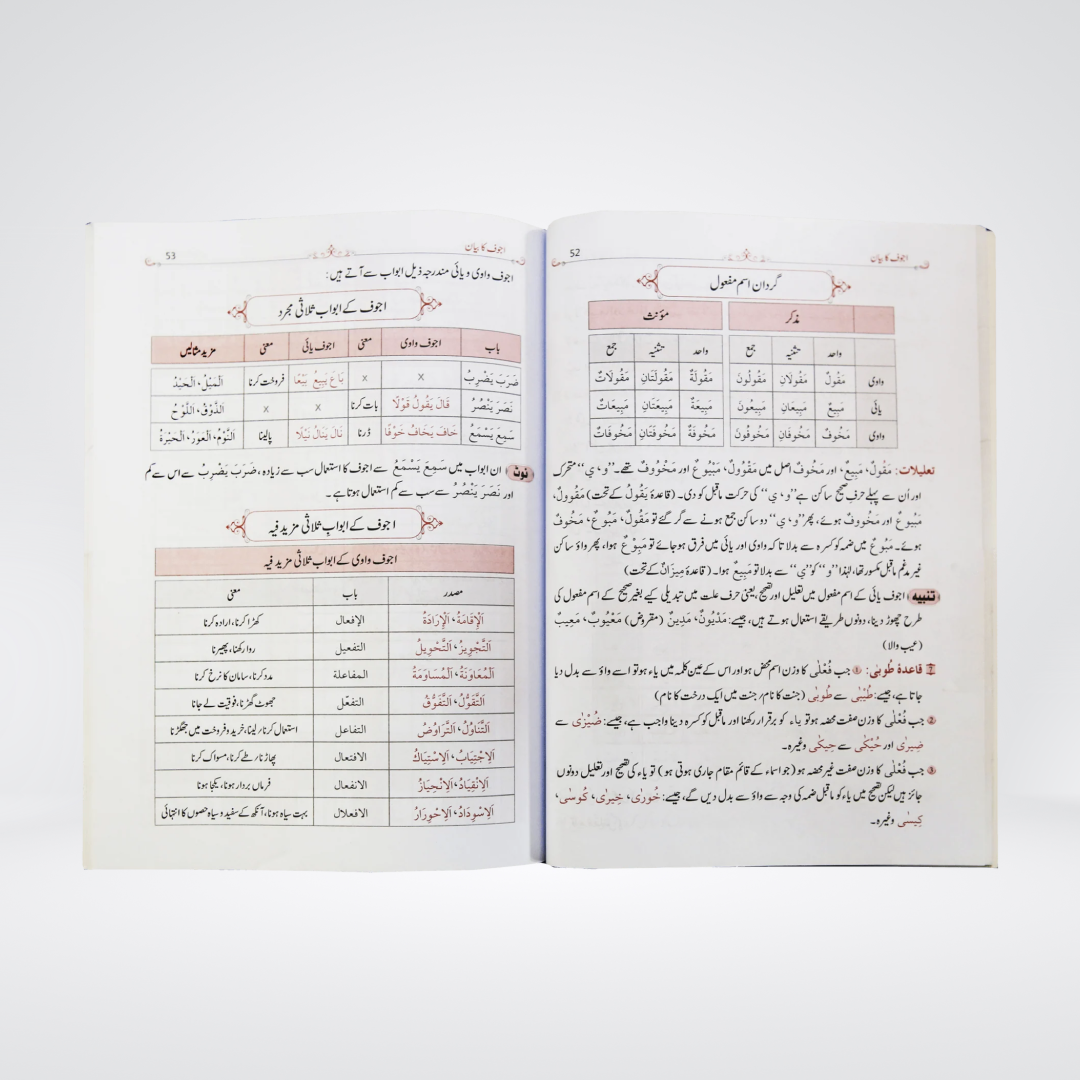 اجوف کا بیان 52
گردان اسم مفعول
مذکر مؤنث
واحد تثنیہ جمع واحد تثنیہ جمع
واوی مَقُولٌ مَقُولَانِ مَقُولُونَ مَقُولَةٌ مَقُولَتَانِ مَقُولَاتٌ
یائی مَبِيعٌ مَبِيعَانِ مَبِيعُونَ مَبِيعَةٌ مَبِيعَتَانِ مَبِيعَاتٌ
واوی مَخُوفٌ مَخُوفَانِ مَخُوفُونَ مَخُوفَةٌ مَخُوفَتَانِ مَخُوفَاتٌ
تعلیلات: مَقُولٌ، مَبِيعٌ، اور مَخُوفٌ اصل میں مَقْوُولٌ، مَبْيُوعٌ اور مَخْوُوفٌ تھے۔ ”و، ی“ متحرک
اور اُن سے پہلے حرفِ صحیح ساکن ہے ”و، ی“ کی حرکت ماقبل کو دی۔ (قاعدہ يَقُولُ کے تحت) مَقُوولٌ،
مَبُيوعٌ اور مَخُووفٌ ہوئے، پھر ”و، ی“ دو ساکن جمع ہونے سے گر گئے تو مَقُولٌ، مَبُوعٌ، مَخُوفٌ
ہوئے۔ مَبُوعٌ میں ضمہ کو کسرہ سے بدلا تاکہ واوی اور یائی میں فرق ہو جائے تو مَبِوْعٌ ہوا، پھر واؤ ساکن
غیر مدغم ماقبل مکسور تھا، لہٰذا ”و“ کو ”ی“ سے بدلا تو مَبِيعٌ ہوا۔ (قاعدہ مِيزَانٌ کے تحت)
تنبیہ اجوف یائی کے اسم مفعول میں تعلیل اور تصحیح، یعنی حرف علت میں تبدیلی کیے بغیر صحیح کے اسم مفعول کی
طرح چھوڑ دینا، دونوں طریقے استعمال ہوتے ہیں، جیسے: مَدْيُونٌ، مَدِينٌ (مقروض) مَعْيُوبٌ، مَعِيبٌ
(عیب والا)
قاعدہ طُوبٰى: ① جب فُعْلٰى کا وزن اسم محض ہو اور اس کے عین کلمہ میں یاء ہو تو اسے واؤ سے بدل دیا
جاتا ہے، جیسے: طُيْبٰى سے طُوبٰى (جنت کا نام/ جنت میں ایک درخت کا نام)
② جب فُعْلٰى کا وزن صفت محضہ ہو تو یاء کو برقرار رکھنا اور ماقبل کو کسرہ دینا واجب ہے، جیسے: ضُيْزٰى سے
ضِيزٰى اور حُيْكٰى سے حِيكٰى وغیرہ۔
③ جب فُعْلٰى کا وزن صفت غیر محضہ ہو (جو اسماء کے قائم مقام جاری ہوتی ہو) تو یاء کی تصحیح اور تعلیل دونوں
جائز ہیں لیکن تصحیح میں یاء کو ماقبل ضمہ کی وجہ سے واؤ سے بدل دیں گے، جیسے: خُورٰى، خِيرٰى، كُوسٰى،
كِيسٰى وغیرہ۔
اجوف کا بیان 53
اجوف واوی و یائی مندرجہ ذیل ابواب سے آتے ہیں:
اجوف کے ابواب ثلاثی مجرد
باب اجوف واوی معنی اجوف یائی معنی مزید مثالیں
ضَرَبَ يَضْرِبُ x x بَاعَ يَبِيعُ بَيْعًا فروخت کرنا اَلْمَيْلُ، اَلْحَيْدُ
نَصَرَ يَنْصُرُ قَالَ يَقُولُ قَوْلًا بات کرنا x x اَلذَّوْقُ، اَللَّوْحُ
سَمِعَ يَسْمَعُ خَافَ يَخَافُ خَوْفًا ڈرنا نَالَ يَنَالُ نَيْلًا پا لینا اَلنَّوْمُ، اَلْعَوَرُ، اَلْحَيْرَةُ
نوٹ ان ابواب میں سَمِعَ يَسْمَعُ سے اجوف کا استعمال سب سے زیادہ، ضَرَبَ يَضْرِبُ سے اس سے کم
اور نَصَرَ يَنْصُرُ سے سب سے کم استعمال ہوتا ہے۔
اجوف کے ابوابِ ثلاثی مزید فیہ
اجوف واوی کے ابواب ثلاثی مزید فیہ
مصدر باب معنی
اَلْإِقَامَةُ، اَلْإِرَادَةُ الإفعال کھڑا کرنا، ارادہ کرنا
اَلتَّجْوِيزُ، اَلتَّحْوِيلُ التفعيل روا رکھنا، پھیرنا
اَلْمُعَاوَنَةُ، اَلْمُسَاوَمَةُ المفاعلة مدد کرنا، سامان کا نرخ کرنا
اَلتَّقَوُّلُ، اَلتَّفَوُّقُ التفعّل جھوٹ گھڑنا، فوقیت لے جانا
اَلتَّنَاوُلُ، اَلتَّرَاوُضُ التفاعل استعمال کرنا/ لینا، خرید و فروخت میں جھگڑنا
اَلِاجْتِيَابُ، اَلِاسْتِيَاكُ الافتعال پھاڑنا/ طے کرنا، مسواک کرنا
اَلِانْقِيَادُ، اَلِانْحِيَازُ الانفعال فرماں بردار ہونا، یکجا ہونا
اَلِاسْوِدَادُ، اَلِاحْوِرَارُ الافعلال بہت سیاہ ہونا، آنکھ کے سفید و سیاہ حصوں کا انتہائی